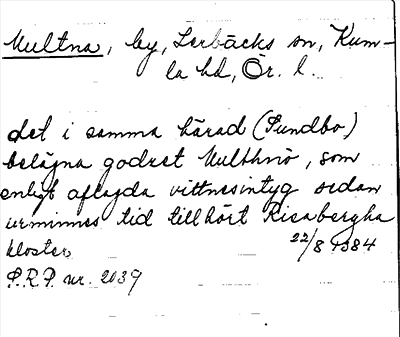 Multna, by, Lerbäcks sn, Kum-
la hd, Ör. l.
det i samma härad (Sundbo)
belägna godset Multhnö, som
enligt aflagda vittnesintyg sedan
urminnes tid tillhört Risabergha
kloster
22/8 1384
P.R.P. nr. 2039